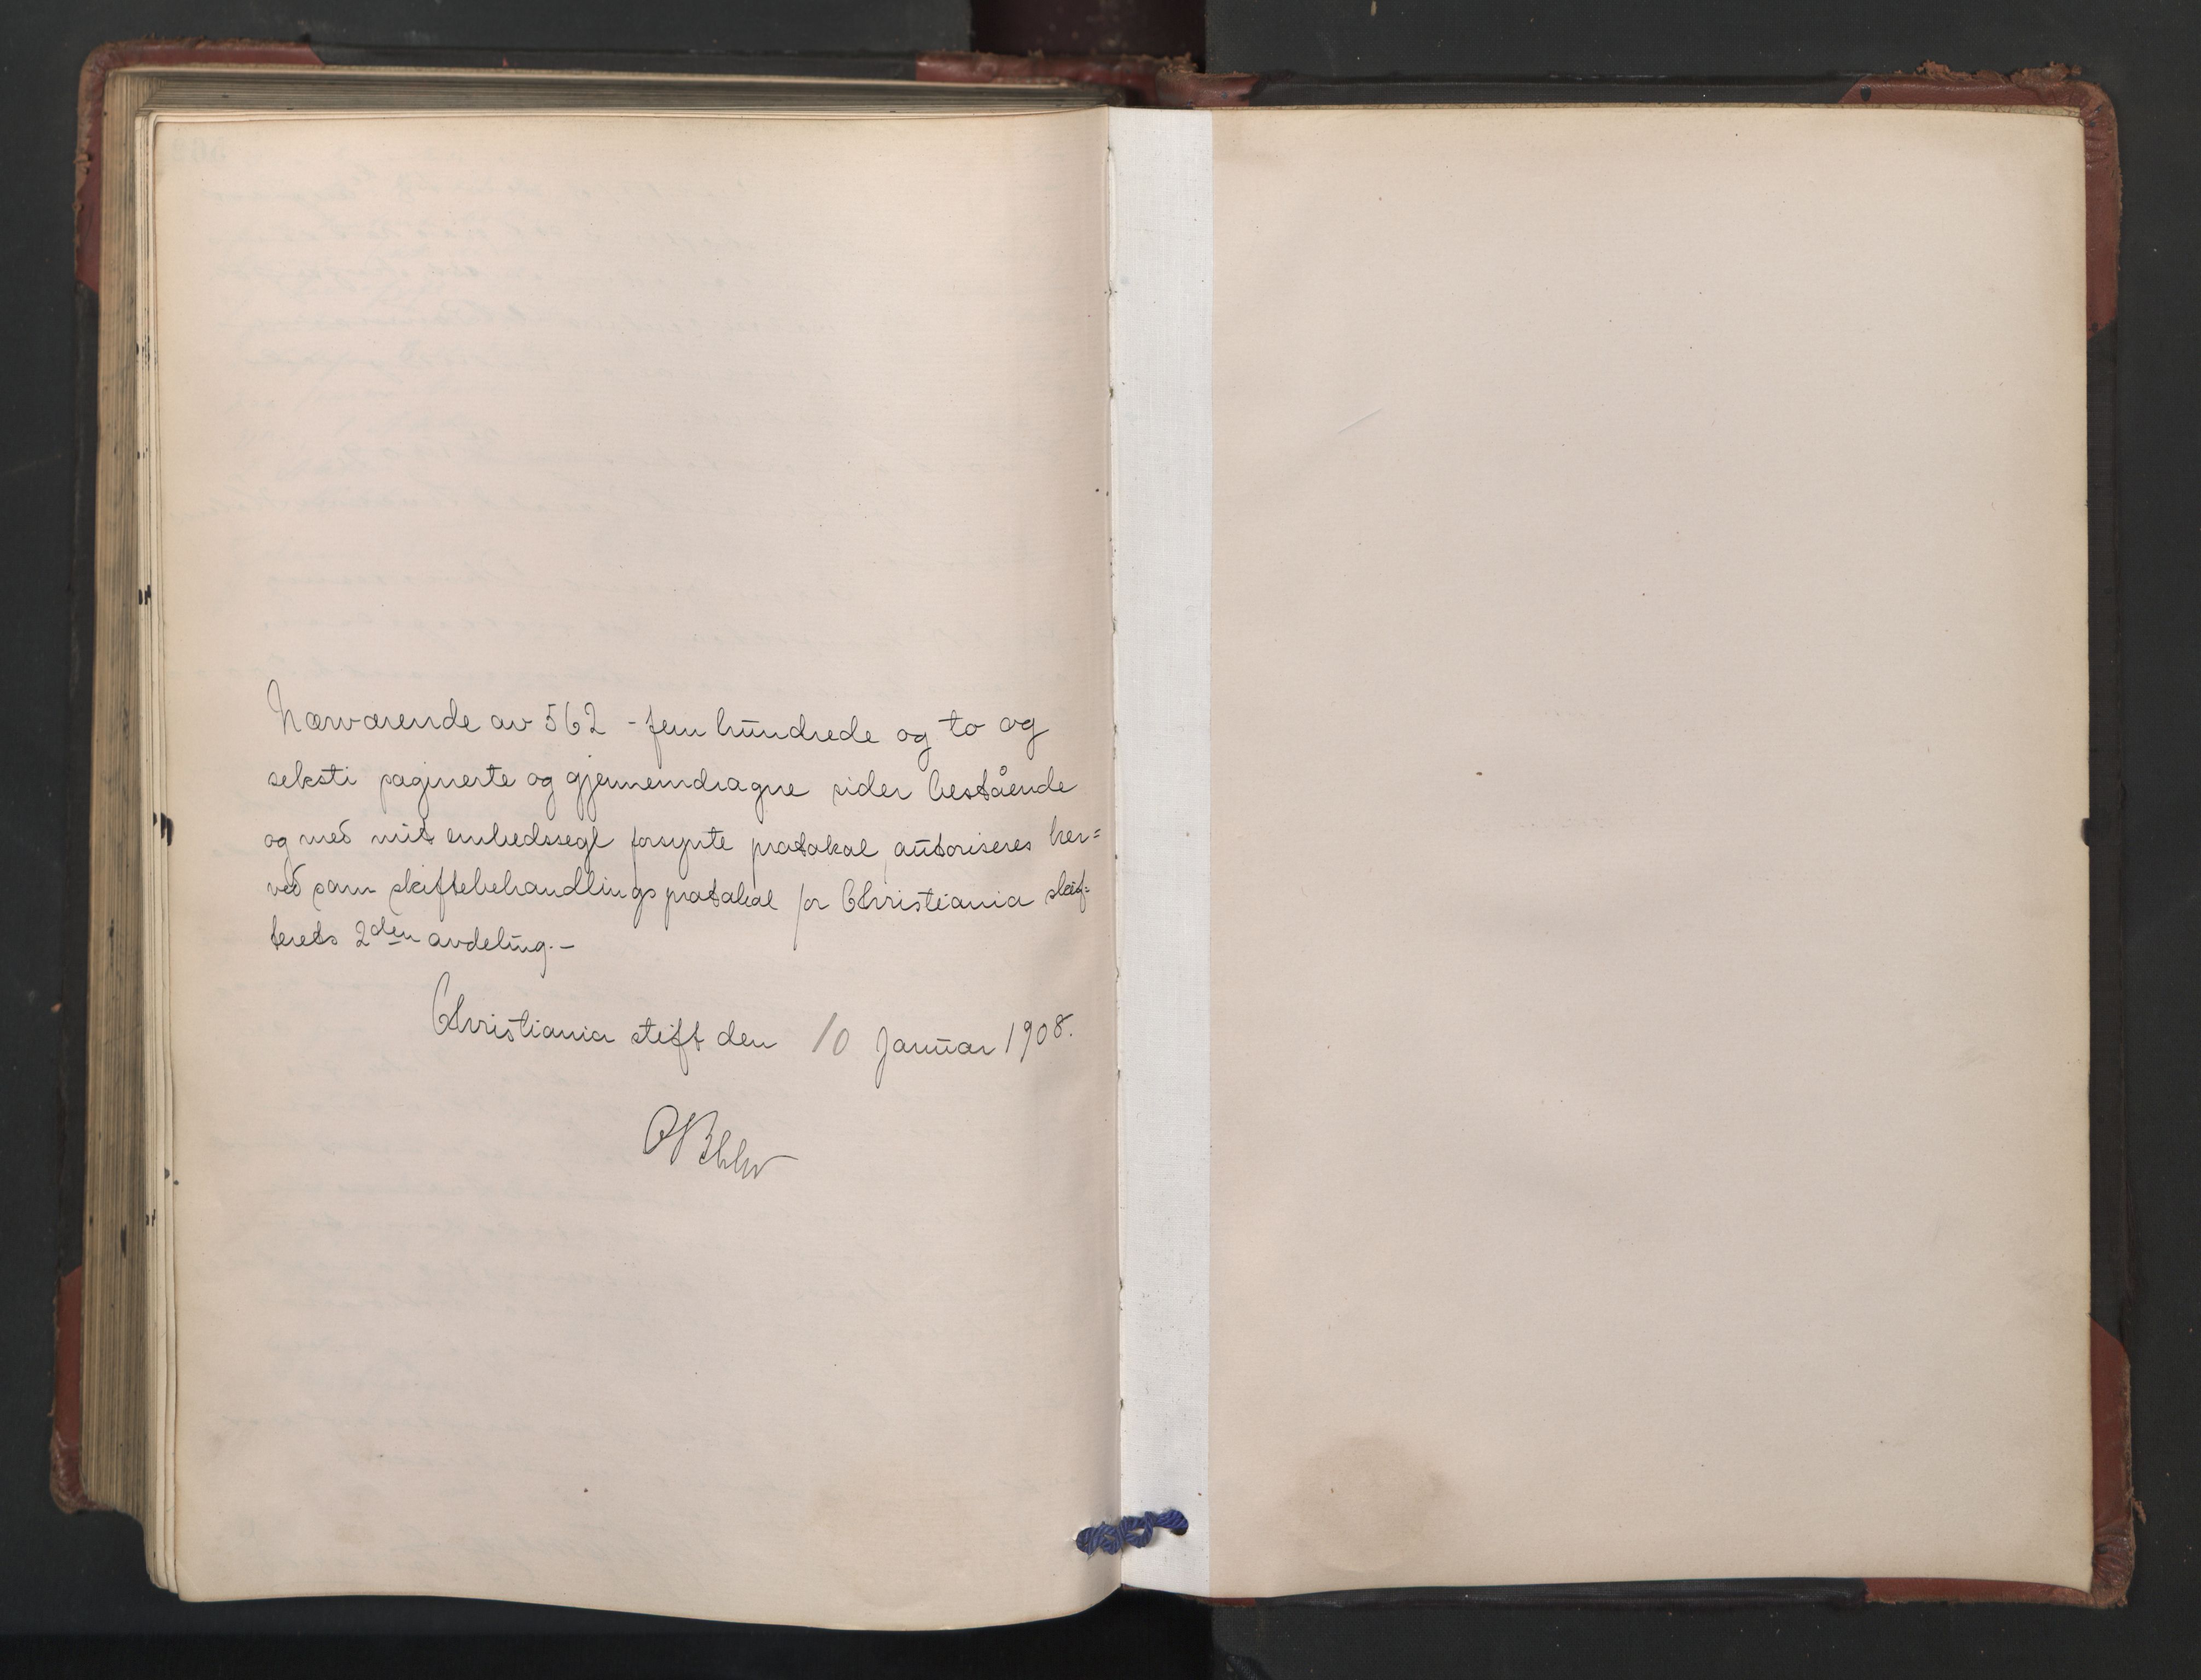 Nærværende av 562 - fem hundrede og to og
seksti paginerte og gjennemdragne sider bestående
og med mit embedssegl forsynte protokol autoriseres her=
ved som skiftebehandlingsprotokol for Christiania skif=
terets 2den avdeling.-
Christiania stift den 10 Januar 1908.